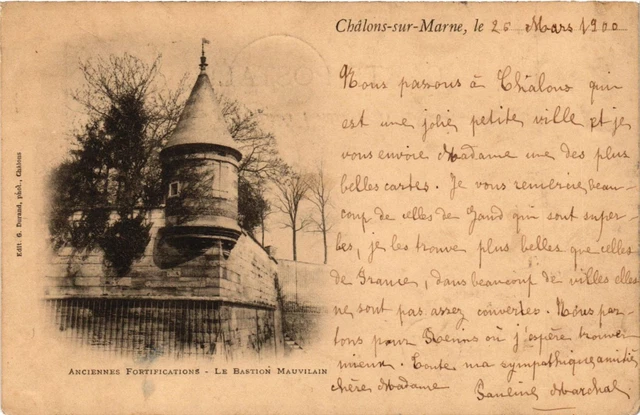 Châlons-sur-Marne, le 26 Mars 1900
Nous passons à Châlons qui
est une jolie petite ville et je
vous envoie Madame une des plus
belles cartes. Je vous remercie beau-
coup de celles de Gand qui sont super
bes, je les trouve plus belles que celles
de France, dans beaucoup de villes elles
ne sont pas assez couvertes. Nous par-
tons pour Reims où j'espère trouver
mieux. Toute ma sympathique amitié
chère Madame Pauline Marchal
Edit. G. Durand, phot., Châlons
Anciennes Fortifications - Le Bastion Mauvilain